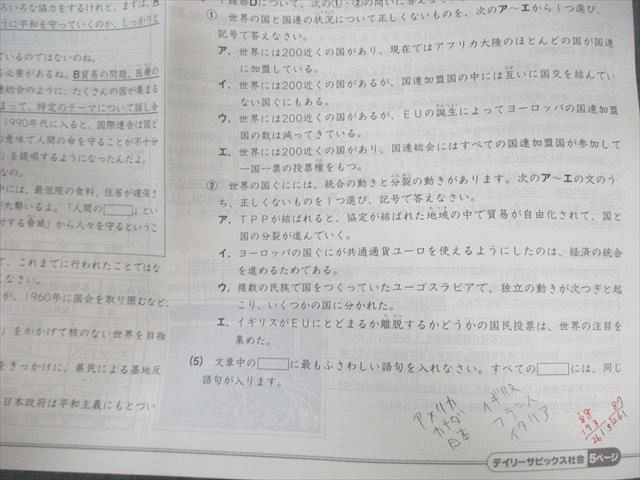 ろいろな協力をするけれど、まずは、B
うに平和を守っていくのか、しっかりと
ているのではないのね。
る必要があるね。B貿易の問題、医療の
連総会のように、たくさんの国が集まる
まって、特定のテーマについて話し合
1990年代に入ると、国際連合は国ど
の意味で人間の命を守ることが不十分
」を提唱するようになったんだよ。
なの。
中には、最低限の食料、住居が確保さ
大勢いるよ。「人間の□」とい
対する脅威」から人々を守るというこ
て、これまでに行われたことではな
なさい。
が、1960年に国会を取り囲むなど、
」をかかげて核のない世界を目指
をきっかけに、県民による基地反
日本政府は平和主義にもとづい
下線部Dについて、次の①・②の問いに答えなさい。
① 世界の国と国連の状況について正しくないものを、次のア〜エから1つ選び、
記号で答えなさい。
ア. 世界には200近くの国があり、現在ではアフリカ大陸のほとんどの国が国連
に加盟している。
イ. 世界には200近くの国があるが、国連加盟国の中には互いに国交を結んでい
ない国ぐにもある。
ウ. 世界には200近くの国があるが、EUの誕生によってヨーロッパの国連加盟
国の数は減ってきている。
エ. 世界には200近くの国があり、国連総会にはすべての国連加盟国が参加して
一国一票の投票権をもつ。
② 世界の国ぐにには、統合の動きと分裂の動きがあります。次のア〜エの文のう
ち、正しくないものを1つ選び、記号で答えなさい。
ア. TPPが結ばれると、協定が結ばれた地域の中で貿易が自由化されて、国と
国の分裂が進んでいく。
イ. ヨーロッパの国ぐにが共通通貨ユーロを使えるようにしたのは、経済の統合
を進めるためである。
ウ. 複数の民族で国をつくっていたユーゴスラビアで、独立の動きが次つぎと起
こり、いくつかの国に分かれた。
エ. イギリスがEUにとどまるか離脱するかどうかの国民投票は、世界の注目を
集めた。
(5) 文章中の□に最もふさわしい語句を入れなさい。すべての□には、同じ
語句が入ります。
アメリカ
カナダ
日本
イギリス
フランス
イタリア
デイリーサピックス社会 5ページ